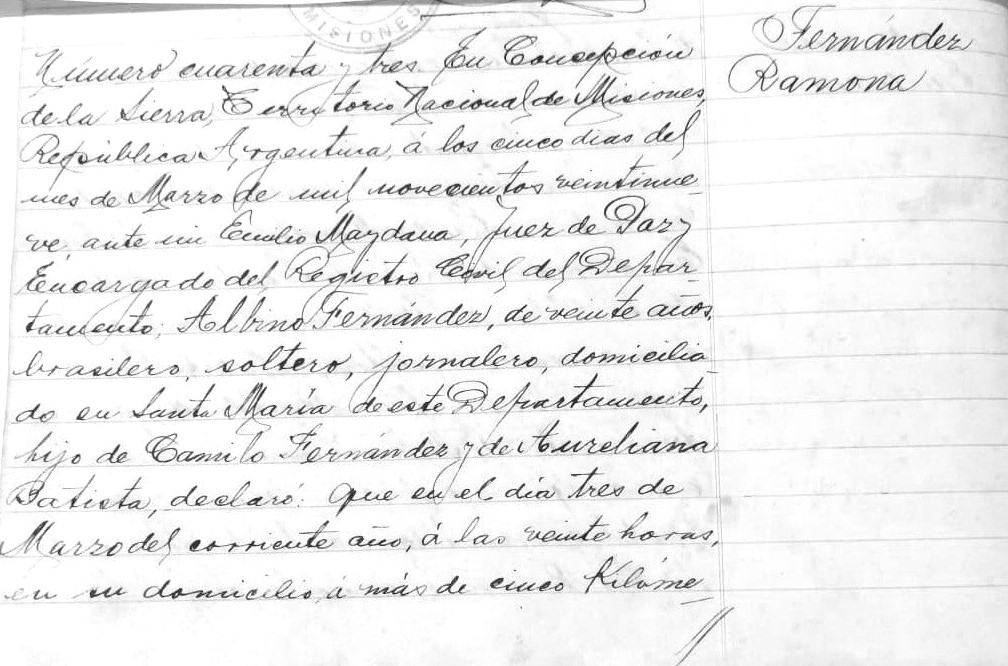 MISIONES
Fernández
Ramona
Número cuarenta y tres. En Concepción
de la Sierra, Territorio Nacional de Misiones,
República Argentina, á los cinco dias del
mes de Marzo de mil novecientos veintinue
ve, ante mi Emilio Maydana, Juez de Paz y
Encargado del Registro Civil del Depar-
tamento; Albino Fernández, de veinte años,
brasilero, soltero, jornalero, domicilia
do en Santa María de este Departamento,
hijo de Camilo Fernández y de Aureliana
Batista, declaró: Que en el día tres de
Marzo del corriente año, á las veinte horas,
en su domicilio, á más de cinco Kilóme